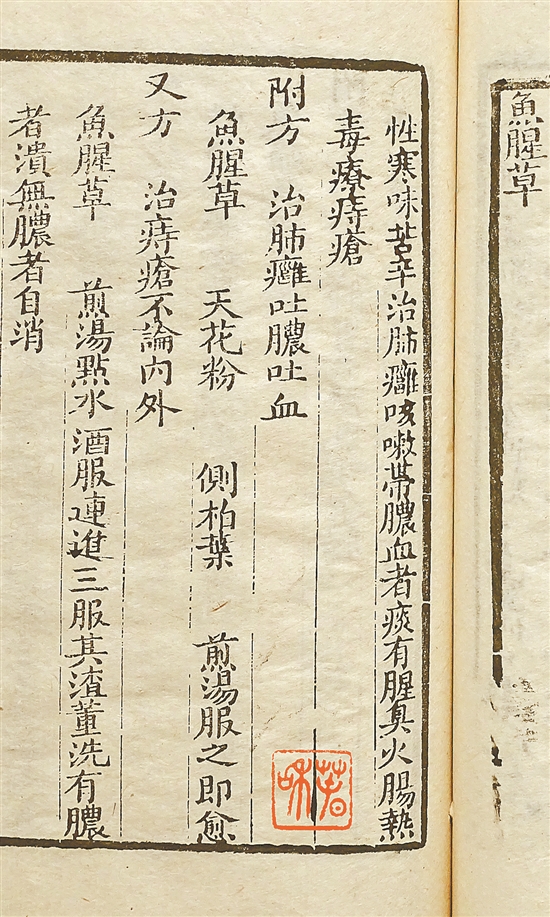 魚腥草
性寒味苦辛治肺癰咳嗽帶膿血者痰有腥臭火腸熱
毒療痔瘡
附方 治肺癰吐膿吐血
魚腥草 天花粉 側柏葉 煎湯服之即愈
又方 治痔瘡不論內外
魚腥草 煎湯點水酒服連進三服其渣董洗有膿
者潰無膿者自消